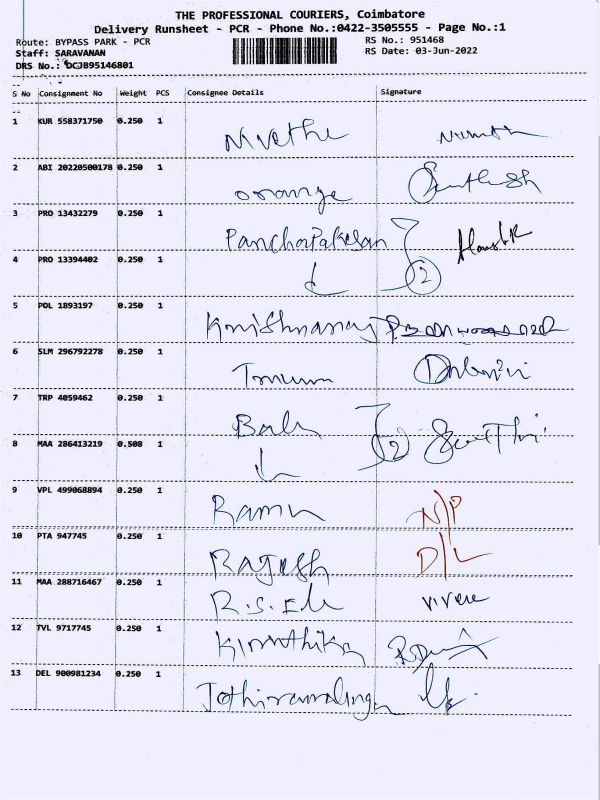 THE PROFESSIONAL COURIERS, Coimbatore
Delivery Runsheet - PCR - Phone No.:0422-3505555 - Page No.:1
Route: BYPASS PARK - PCR RS No.: 951468
Staff: SARAVANAN RS Date: 03-Jun-2022
DRS No.: DCJB95146801
S No Consignment No Weight PCS Consignee Details Signature
1 KUR 558371750 0.250 1 Nivethe
2 ABI 20220500178 0.250 1 orange Santhosh
3 PRO 13432279 0.250 1 Panchapakesan
4 PRO 13394402 0.250 1 2
5 POL 1893197 0.250 1 Krishnaraj
6 SLM 296792278 0.250 1
7 TRP 4059462 0.250 1 Balu
8 MAA 286413219 0.508 1 2
9 VPL 499068894 0.250 1 Ramu N/P
10 PTA 947745 0.250 1 Rajesh D/L
11 MAA 288716467 0.250 1 R.S.
12 TVL 9717745 0.250 1 Kiruthika
13 DEL 900981234 0.250 1 Jothiramalinga